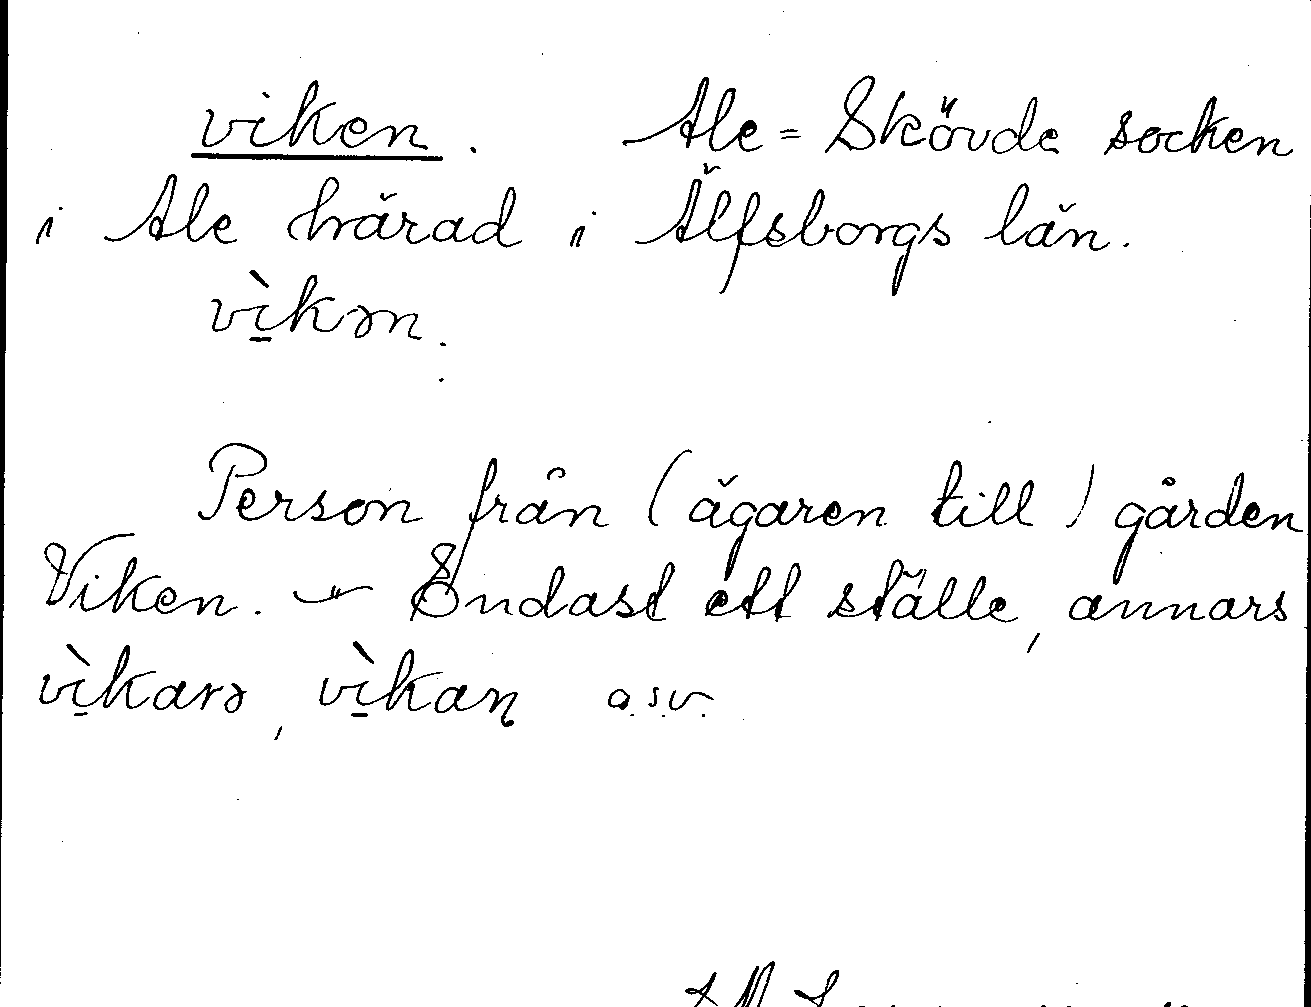 viken. Ale=Skövde socken
i Ale härad i Älfsborgs län.
vì̱kən.
Person från (ägaren till) gården
Viken. — Endast ett ställe, annars
vì̱karə, vì̱kaꞃ o.s.v.